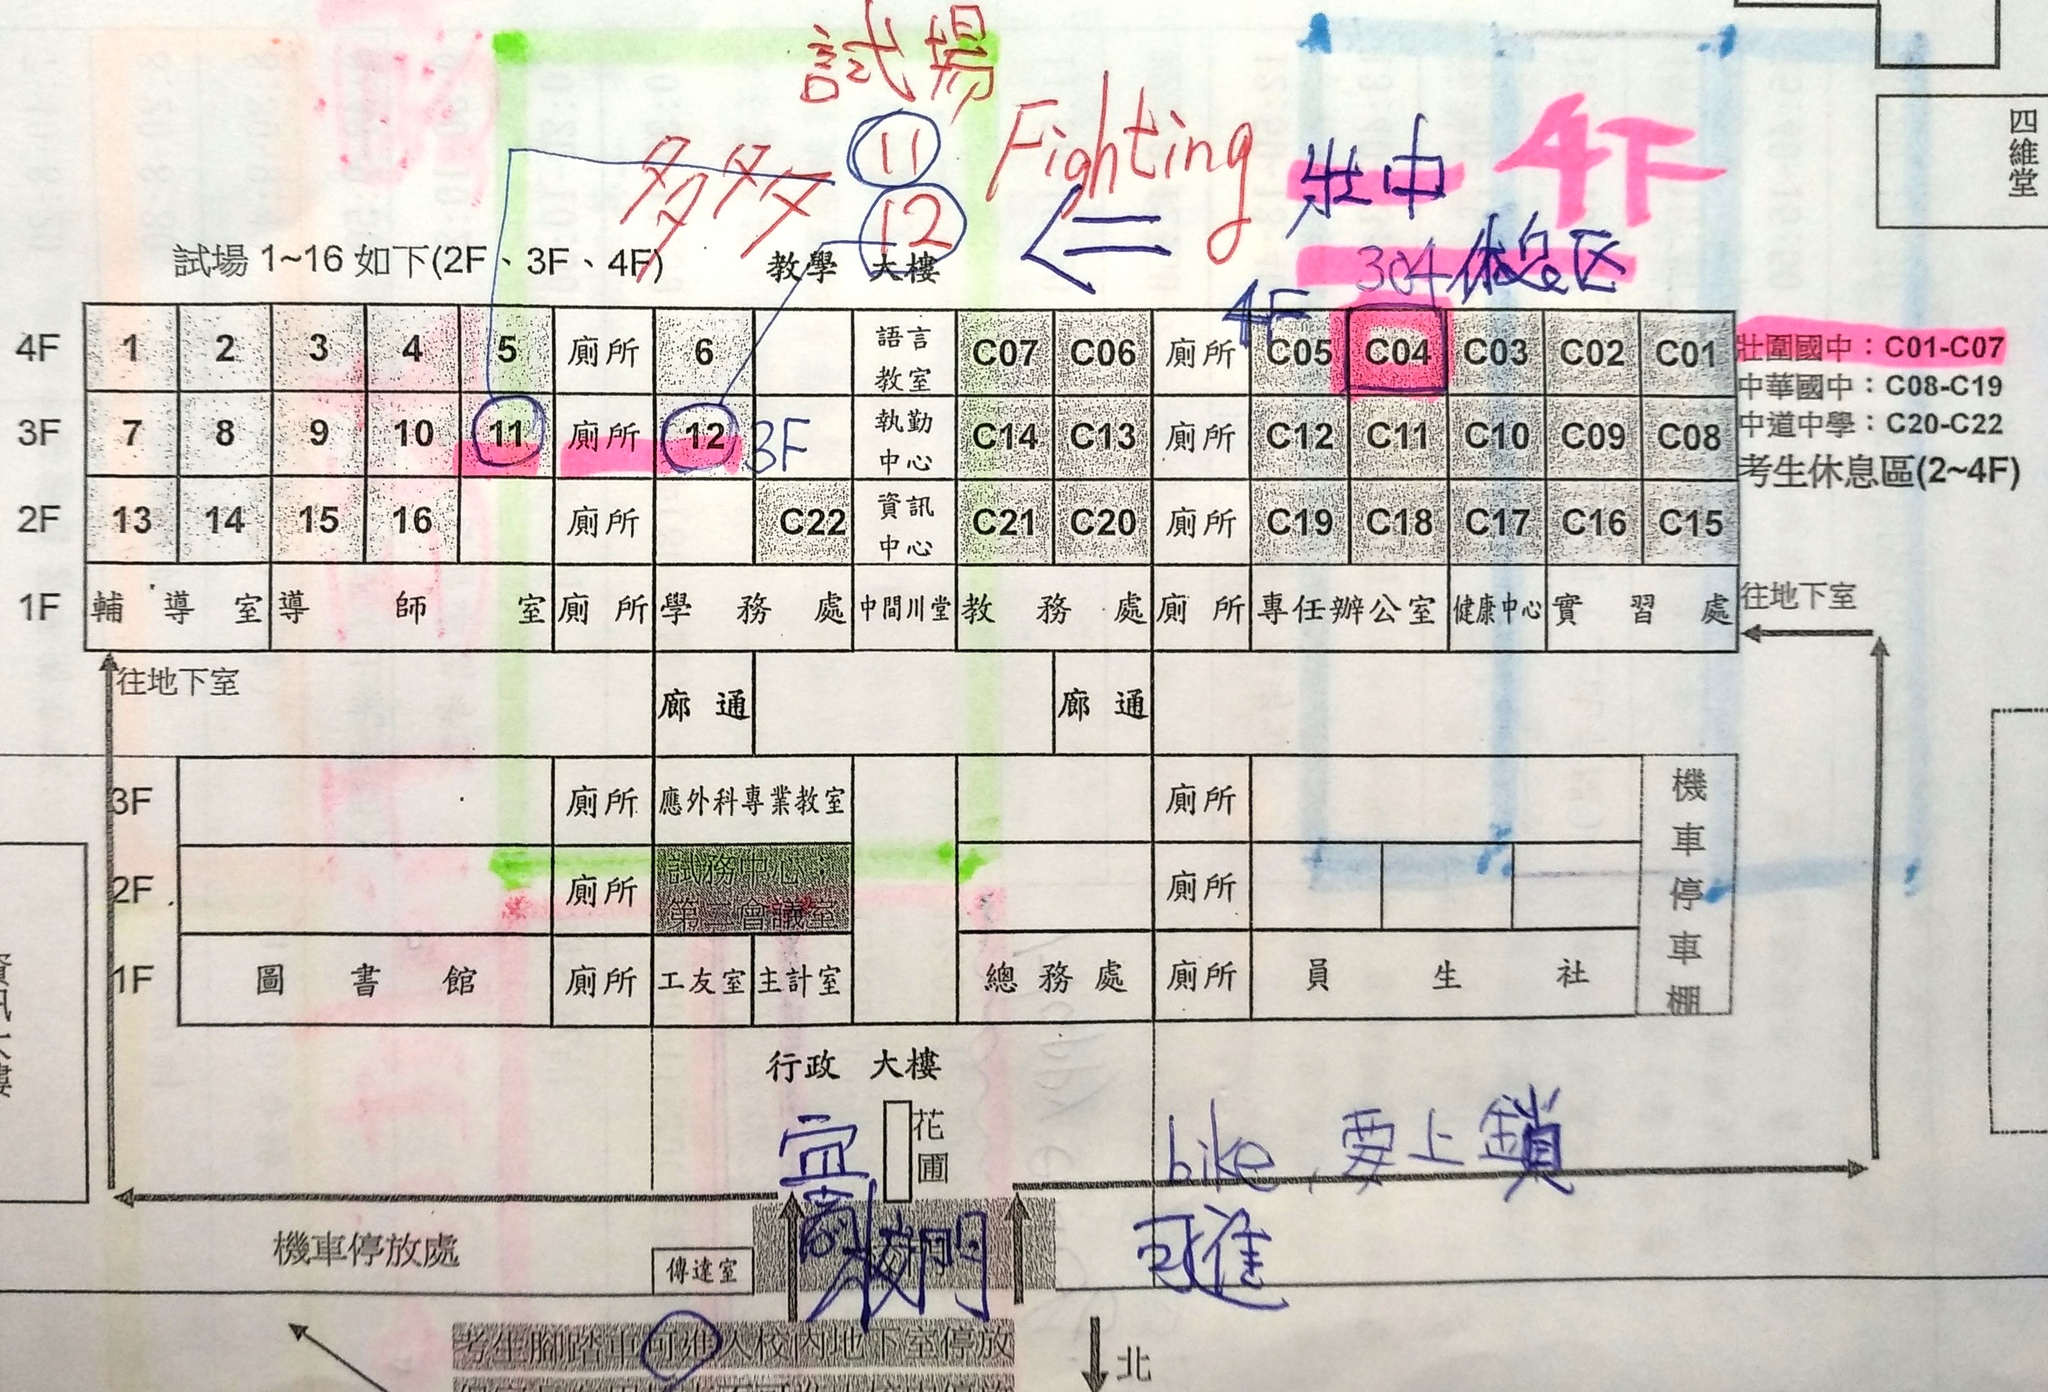 試場
11 Fighting
多多 12 壯中 4F
304休息区
試場 1~16 如下(2F、3F、4F) 教學 大樓
4F
4F 1 2 3 4 5 廁所 6 語言教室 C07 C06 廁所 C05 C04 C03 C02 C01 壯圍國中：C01-C07
中華國中：C08-C19
3F 7 8 9 10 11 廁所 12 3F 執勤中心 C14 C13 廁所 C12 C11 C10 C09 C08 中道中學：C20-C22
考生休息區(2~4F)
2F 13 14 15 16 廁所 C22 資訊中心 C21 C20 廁所 C19 C18 C17 C16 C15
1F 輔導室 導師室 廁所 學務處 中間川堂 教務處 廁所 專任辦公室 健康中心 實習處 往地下室
往地下室
廊通 廊通
3F 廁所 應外科專業教室 廁所
2F 廁所 試務中心：第三會議室 廁所
1F 圖書館 廁所 工友室 主計室 總務處 廁所 員生社
機車停車棚
四維堂
行政 大樓
花圃
宜商
校門
bike, 要上鎖
可進
機車停放處
傳達室
考生腳踏車可進入校內地下室停放
北